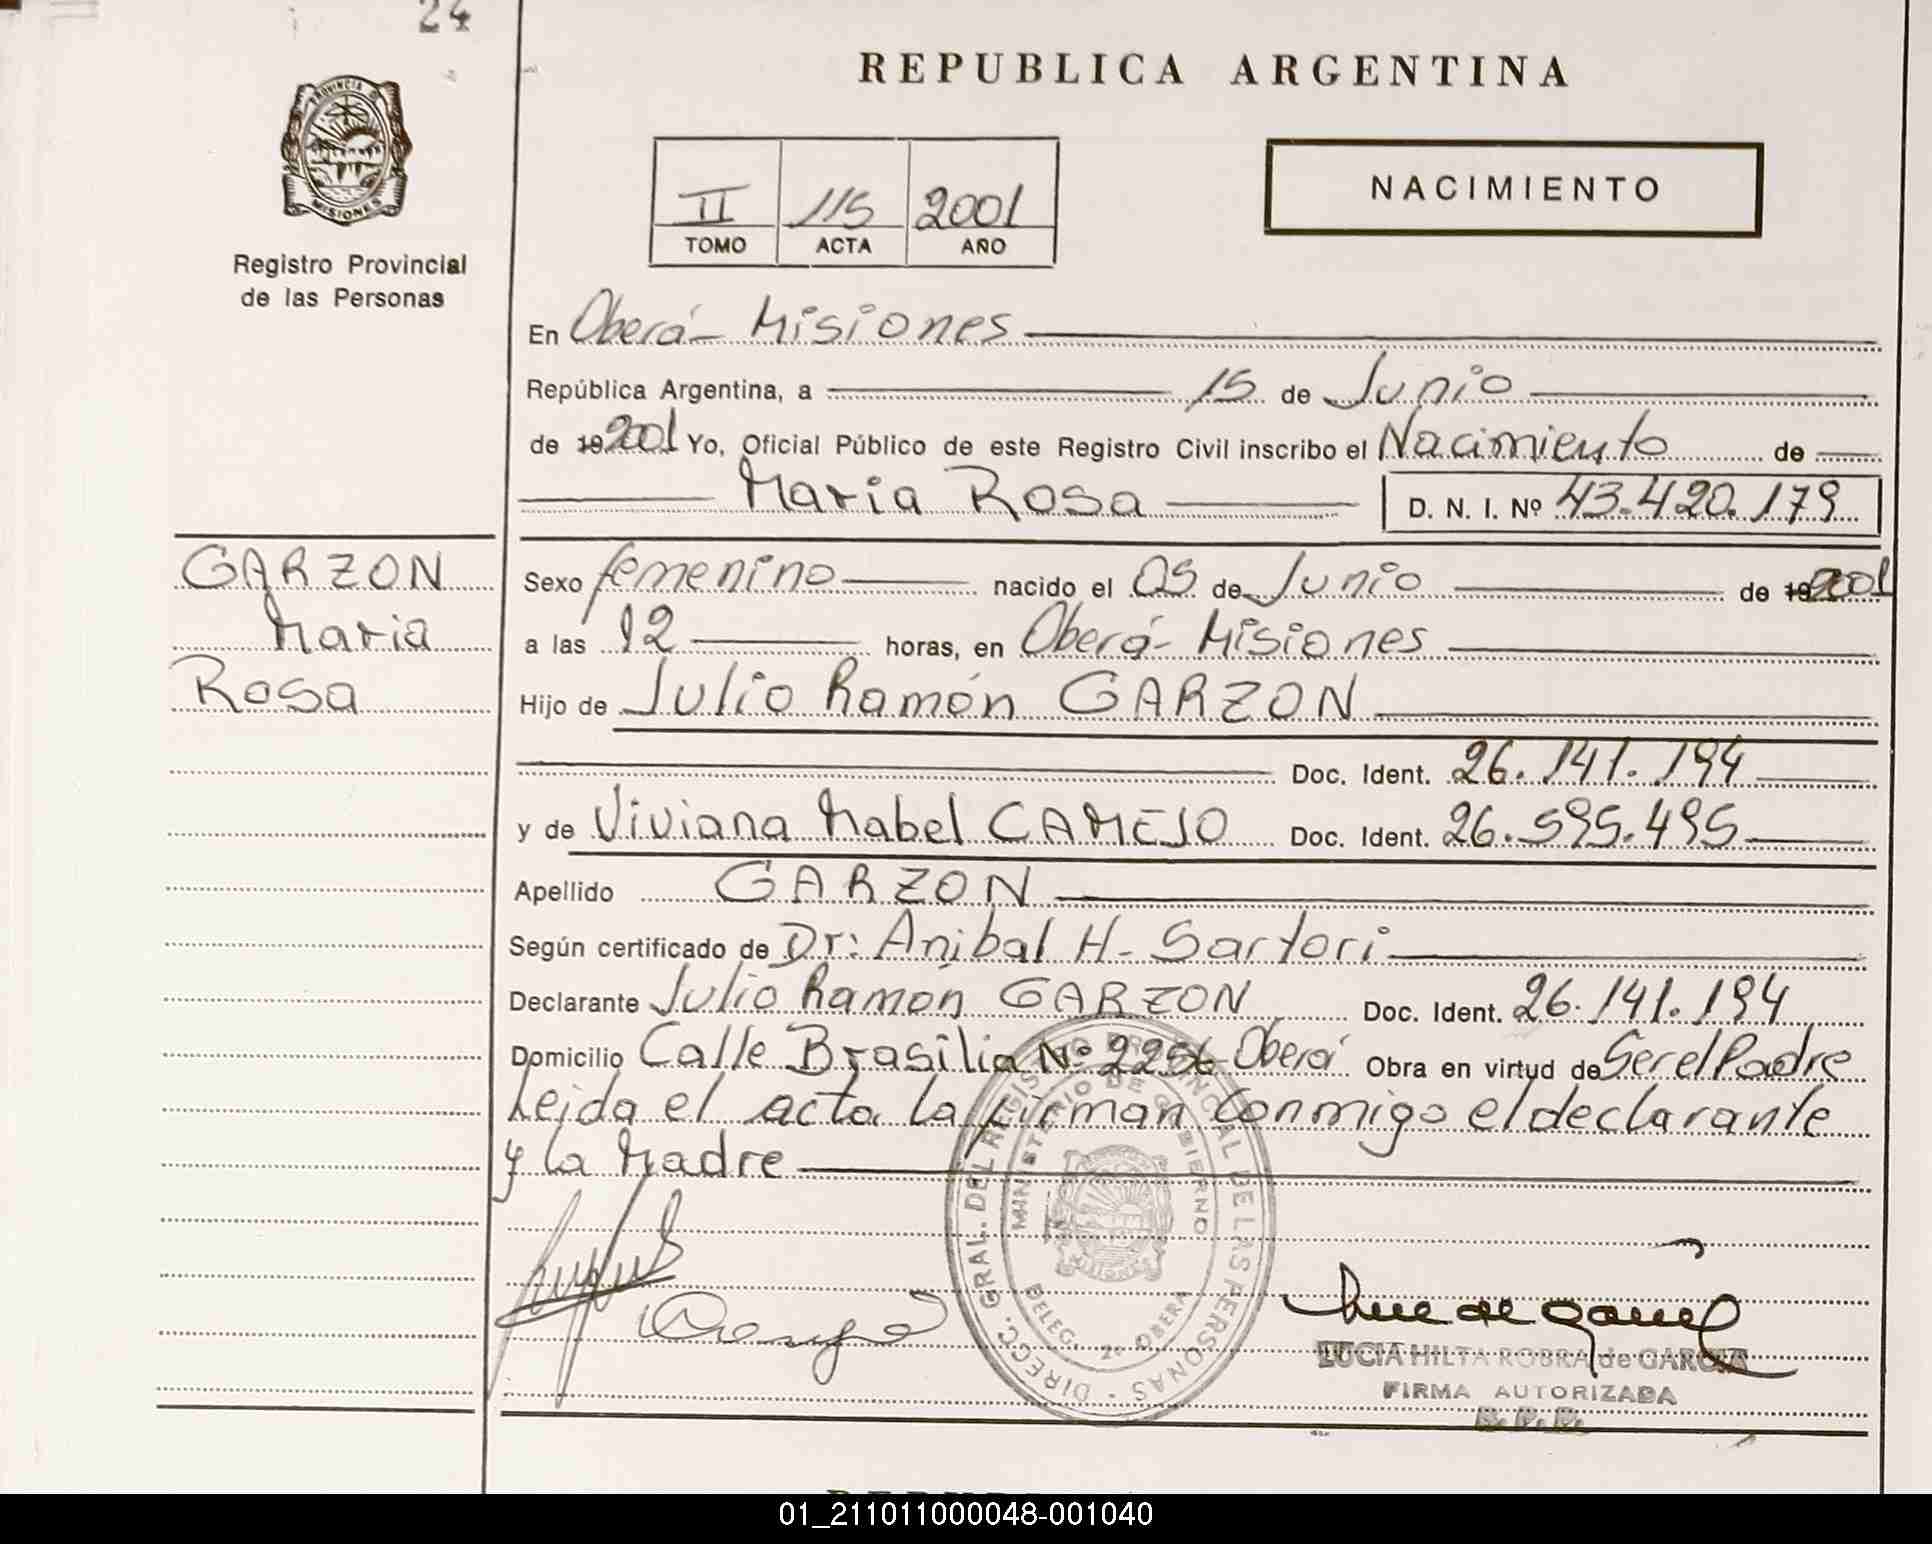 24
REPUBLICA ARGENTINA
PROVINCIA D
MISIONES
Registro Provincial
de las Personas
II 115 2001
TOMO ACTA AÑO
NACIMIENTO
En Oberá - Misiones
República Argentina, a 15 de Junio
de 19 2001 Yo, Oficial Público de este Registro Civil inscribo el Nacimiento de
Maria Rosa D. N. I. Nº 43.420.179
GARZON
Maria
Rosa
Sexo femenino nacido el 05 de Junio de 19 2001
a las 12 horas, en Oberá - Misiones
Hijo de Julio Ramón GARZON
Doc. Ident. 26.141.194
y de Viviana Mabel CAMEJO Doc. Ident. 26.595.495
Apellido GARZON
Según certificado de Dr: Anibal H. Sartori
Declarante Julio Ramón GARZON Doc. Ident. 26.141.194
Domicilio Calle Brasilia Nº 2256 Oberá Obra en virtud de Ser el Padre
Leida el acta la firman conmigo el declarante
y la Madre
DIRECC. GRAL. DEL REGISTRO PROVINCIAL DE LAS PERSONAS
MINISTERIO DE GOBIERNO
DELEG. 2º OBERA
LUCIA HILTA ROBRA de GARCIA
FIRMA AUTORIZADA
R. P. P.
01_211011000048-001040